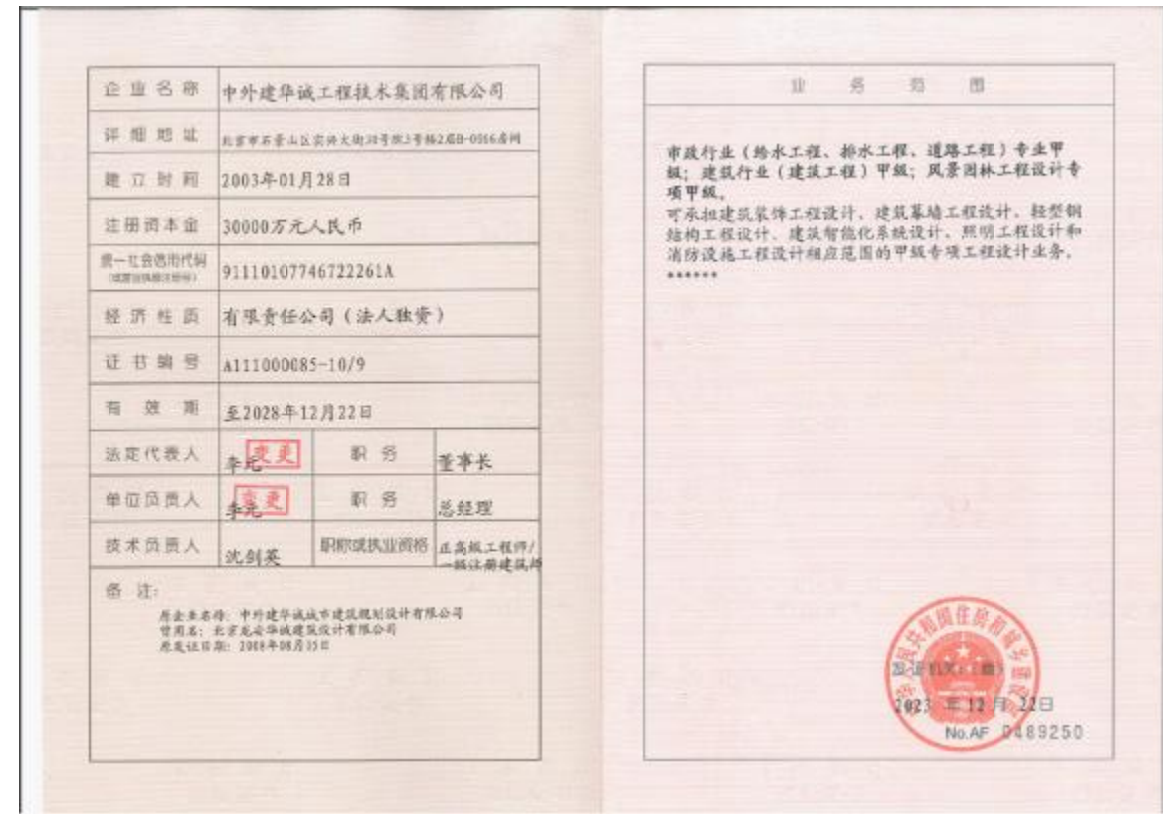 企业名称 中外建华诚工程技术集团有限公司
详细地址 北京市石景山区实兴大街30号院3号楼2层B-0366房间
建立时间 2003年01月28日
注册资本金 30000万元人民币
统一社会信用代码 91110107746722261A
(或营业执照注册号)
经济性质 有限责任公司（法人独资）
证书编号 A111000085-10/9
有效期 至2028年12月22日
法定代表人 李元 变更 职务 董事长
单位负责人 李元 变更 职务 总经理
技术负责人 沈剑英 职称或执业资格 正高级工程师/
一级注册建筑师
备注：
原企业名称：中外建华诚城市建筑规划设计有限公司
曾用名：北京龙安华诚建筑设计有限公司
原发证日期：2008年08月15日
业务范围
市政行业（给水工程、排水工程、道路工程）专业甲
级；建筑行业（建筑工程）甲级；风景园林工程设计专
项甲级。
可承担建筑装饰工程设计、建筑幕墙工程设计、轻型钢
结构工程设计、建筑智能化系统设计、照明工程设计和
消防设施工程设计相应范围的甲级专项工程设计业务。
******
中华人民共和国住房和城乡建设部
发证机关：（章）
2023年12月22日
No.AF 0489250